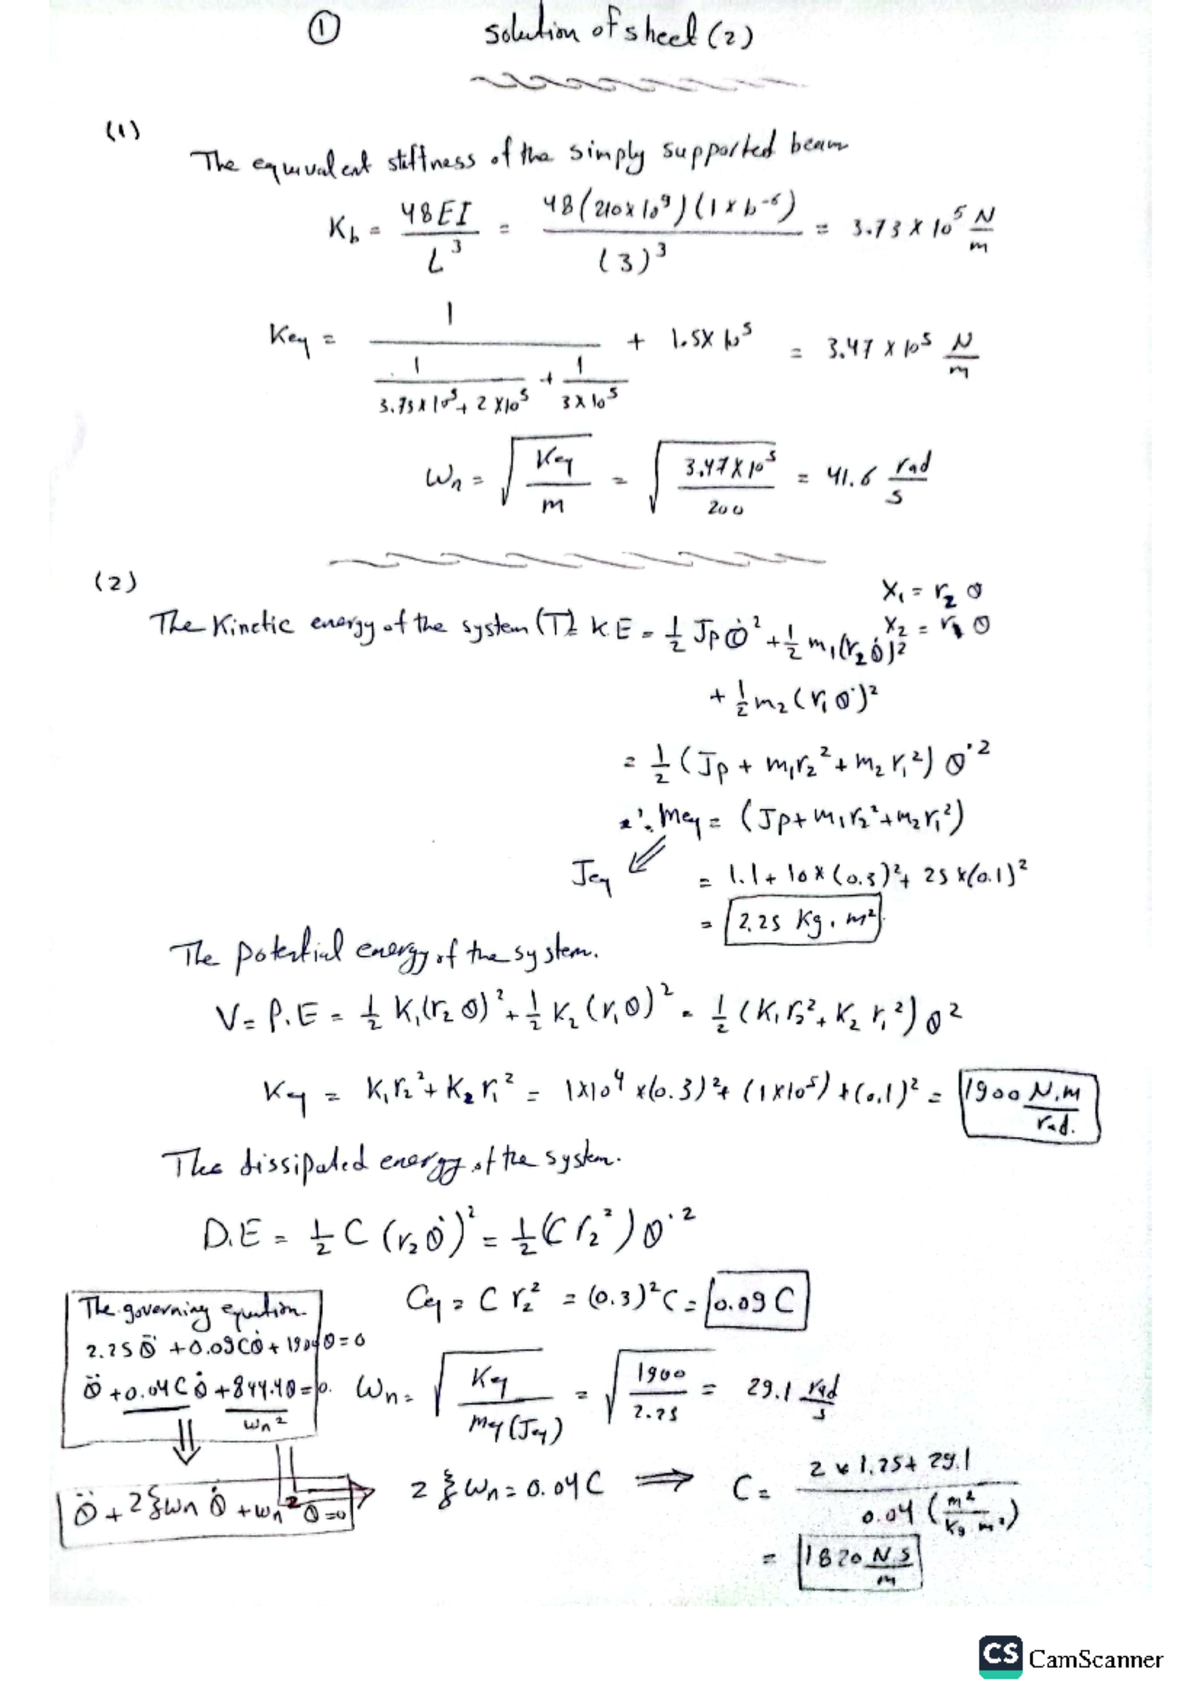 ① solution of sheet (2)
(1)
The equivalent stiffness of the simply supported beam
K_b = 48EI / L^3 = 48(210x10^9)(1x10^-6) / (3)^3 = 3.73 x 10^5 N/m
Keq = 1 / (1/(3.73x10^5 + 2x10^5) + 1/(3x10^5)) + 1.5x10^5 = 3.47 x 10^5 N/m
ω_n = √(Keq/m) = √(3.47x10^5/200) = 41.6 rad/s
(2)
x_1 = r_2 θ
x_2 = r_1 θ
The Kinetic energy of the system (T) = K.E = 1/2 Jp θ̇^2 + 1/2 m_1(r_2 θ̇)^2
+ 1/2 m_2 (r_1 θ̇)^2
= 1/2 (Jp + m_1r_2^2 + m_2 r_1^2) θ̇^2
∴ meq = (Jp + m_1r_2^2 + m_2r_1^2)
Jeq = 1.1 + 10 x (0.3)^2 + 25 x (0.1)^2
= 2.25 Kg. m^2
The potential energy of the system.
V = P.E = 1/2 K_1(r_2 θ)^2 + 1/2 K_2 (r_1 θ)^2 = 1/2 (K_1 r_2^2 + K_2 r_1^2) θ^2
Keq = K_1r_2^2 + K_2 r_1^2 = 1x10^4 x(0.3)^2 + (1x10^5) + (0.1)^2 = 1900 N.m/rad.
The dissipated energy of the system.
D.E = 1/2 C (r_2 θ̇)^2 = 1/2 (C r_2^2) θ̇^2
Ceq = C r_2^2 = (0.3)^2 C = 0.09 C
The governing equation.
2.25 θ̈ + 0.09Cθ̇ + 1900θ = 0
θ̈ + 0.04C θ̇ + 844.4θ = 0.
ω_n^2
ω_n = √(Keq / meq (Jeq)) = √(1900/2.25) = 29.1 rad/s
θ̈ + 2ξω_n θ̇ + ω_n^2 θ = 0
2 ξ ω_n = 0.04 C ⟹ C = 2 x 1.25 + 29.1 / 0.04 (m^2/kg m^2)
= 1820 N.S/m
CS CamScanner